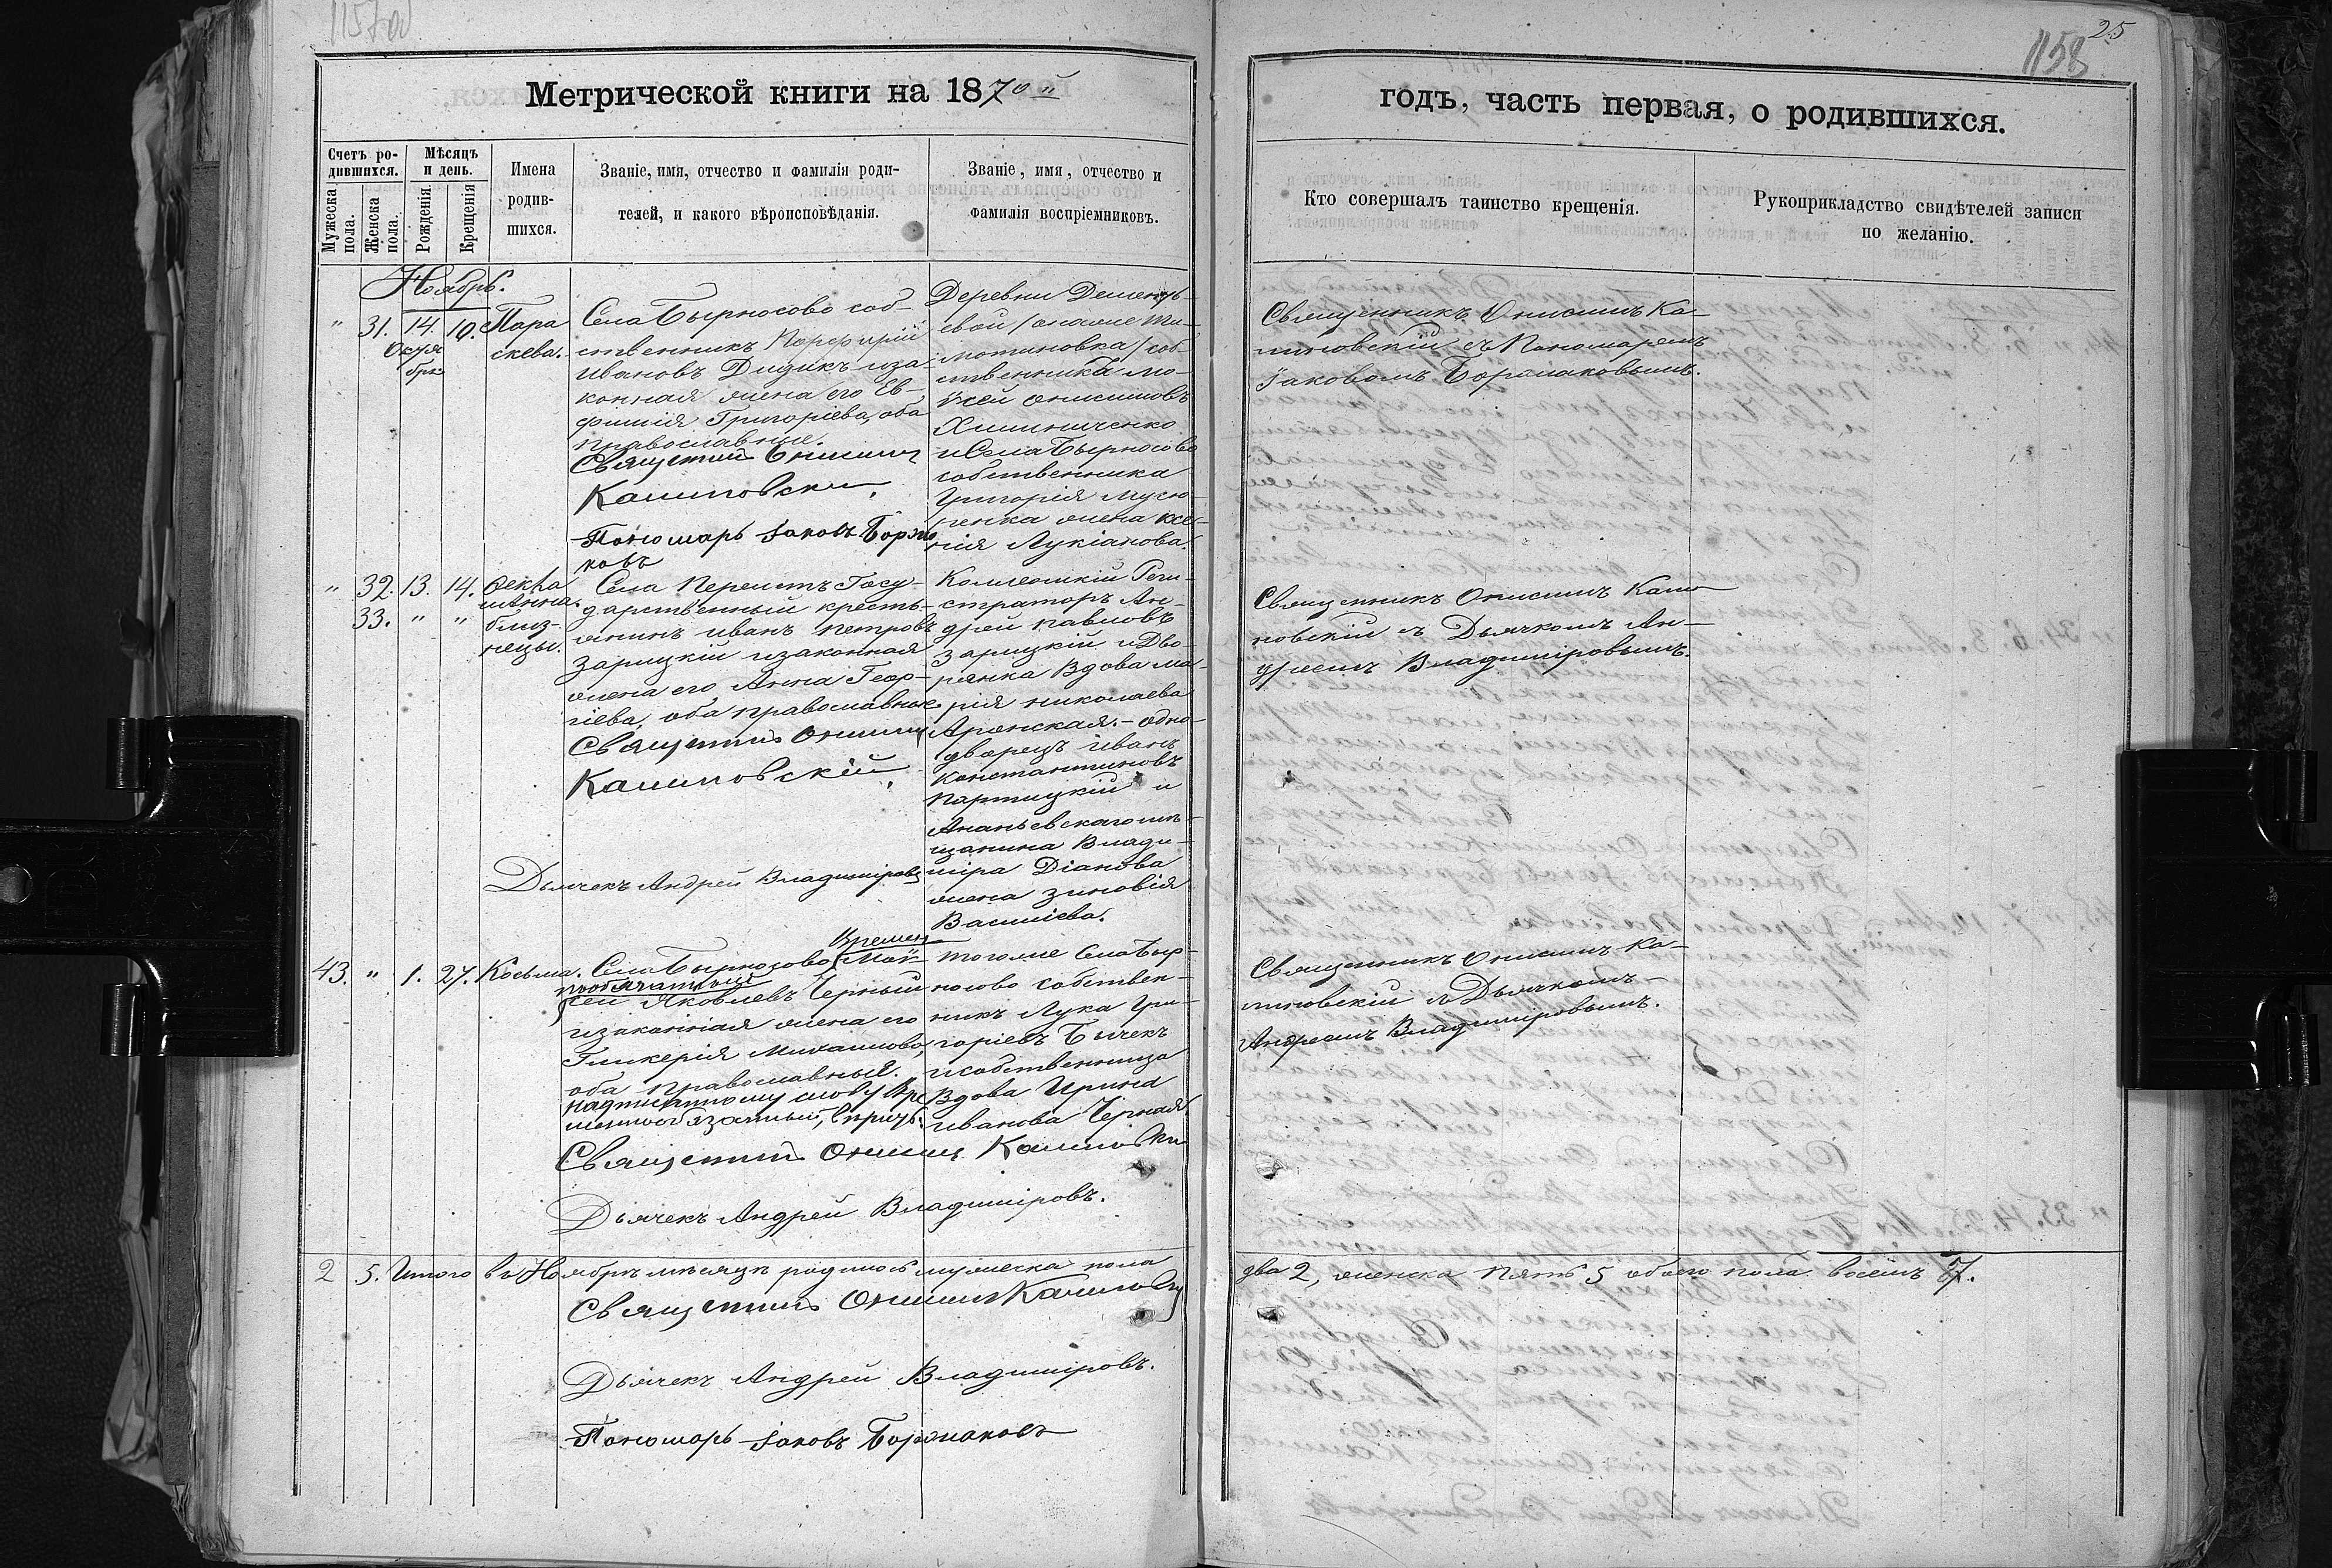 1157об
25
1158
Метрической книги на 1870й
годъ, часть первая, о родившихся.
Счетъ ро-
дившихся.
Мѣсяцъ
и день.
Мужеска
пола.
Женска
пола.
Рожденія.
Крещенія
Имена
родив-
шихся.
Званіе, имя, отчество и фамилія роди-
телей, и какого вѣроисповѣданія.
Званіе, имя, отчество и
фамилія воспріемниковъ.
Кто совершалъ таинство крещенія.
Рукоприкладство свидѣтелей записи
по желанію.
Ноябрь.
" 31. 14. 19. Пара
Октя
брь
скева.
Села Бырносово соб-
ственникъ Порфирій
Ивановъ Дидикъ иза-
конная жена его Ев-
фимія Григоріева, оба
православные.
Священникъ Онисимъ
Калиновскій,
Пономарь Іаковъ Боржа
ковъ
Деревни Дементь-
евой /онаже Ти-
мотиновка/ соб-
ственника Мо-
исей Онисимовъ
Химиниченко
и Села Бырносово
собственника
Григорія
жена Ксе-
нія Лукіанова.
Священникъ Онисимъ Ка-
линовскій съ Пономаремъ
Іаковомъ Боржаковымъ.
" 32. 13. 14. Фекла
33. " "
и Анна.
близ-
нецы.
Села Перелетъ Госу-
дарственный кресть-
янинъ Иванъ Петровъ
Зарицкій изаконная
жена его Анна Геор-
гіева, оба православные.
Священникъ Онисимъ
Калиновскій,
Дьячекъ Андрей Владиміровъ
Коллежскій Реги-
страторъ Ан-
дрей Павловъ
Зарицкій и Дво-
рянка Вдова Ма-
рія Николаева
Аронская. - Одно-
дворецъ Иванъ
Константиновъ
Партицкій и
Ананьевскаго мѣ-
щанина Влади-
міра Діанова
жена Зиновія
Василіева.
Священникъ Онисимъ Кали
новскій съ Дьячкомъ Ан-
дреемъ Владиміровымъ.
43. " 1. 27. Косьма.
Времен
Села Бырнозово (Мой-
нообязатный
сей Яковлевъ Черный
изаконная жена его
Гликерія Михаилова,
оба православные.
надписанному слову Вре
меннообязатный, вѣрить.
Священникъ Онисимъ Калиновскій
Дьячекъ Андрей Владиміровъ.
тогоже Села Быр-
носово собствен-
никъ Лука Гри-
горіевъ Бычекъ
исобственница
Вдова Ирина
Иванова Черная.
Священникъ Онисимъ Ка-
линовскій съ Дьячкомъ
Андреемъ Владиміровымъ.
2 5. Итого въ Ноябрѣ мѣсяцѣ родилось мужеска пола
два 2, женска пять 5 обоего пола восемъ 7.
Священникъ Онисимъ Калиновскій
Дьячекъ Андрей Владиміровъ.
Пономарь Іаковъ Боржаковъ